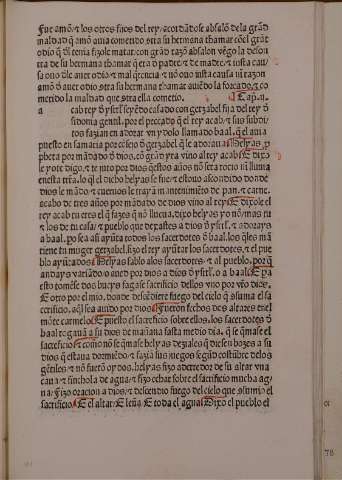 Fue amõ / ⁊ los otros fijos del rey / acordãdose absalõ de la grãd
maldad q̃ amõ auia cometido cõtra su hermana thamar cõ el grãd
odio q̃ dl tenia fizole matar / con grãd razõ absalon vẽgo la deson
rra de su hermana thamar q̃ era d padre / ⁊ de madre / ⁊ justa cau
sa ouo dle auer odio / ⁊ mal q̃rencia / ⁊ nõ ouo justa causa ni razon
amõ d auer odio cõtra su hermana thamar auiẽdo la forçado / ⁊ co
metido la maldad que cõtra ella cometio. Cap. ij.
a cab rey d yrsl seyẽdo casado con gerzabel fija del rey d
sidonia gentil. por el peccado q̃ el rey acab / ⁊ sus subdi
tos fazian en adorar vn ydolo llamado baal. q̃ el auia
puesto en samaria por cõsejo d gerzabel q̃ le adorauã Helyas p
pheta por mãdado d dios. cõ grãd yra vino al rey acab E dixo
le yo te digo / ⁊ te juro por dios q̃ estos años nõ sera rocio ni lluuia
en esta trra. lo q̃l el dicho helyas se fue / ⁊ estouo ascondido donde
dios le mãdo / ⁊ cueruos le trayã mãtenimiẽto de pan / ⁊ carne.
acabo de tres años por mãdado de dios vino al rey E dixole el
rey acab tu eres el q̃ fazes q̃ nõ llueua. dixo helyas yo nõ / mas tu
⁊ los de tu casa / ⁊ pueblo que depastes a dios d ysrl. ⁊ adorays
a baal. po sea asi ayũta todos los sacerdotes d baal. los q̃les mã
tiene tu muger gerzabel. fizo el rey ayũtar los sacerdotes / ⁊ el pue
blo ayũtados Helyas fablo alos sacerdotes / ⁊ al pueblo. por q̃
andays variãdo o aued por dios a dios d ysrl. o a baal E pa
esto tomẽse dos bueys fagase sacrificio dellos vno por vr̃o dios.
E otro por el mio. donde descẽdiere fuego del cielo q̃ cõsuma el sa
crificio. aql̃ sea auido por dios Fueron fechos dos altares en el
mõte carmelo E puesto el sacrificio sobre ellos. los sacerdotes d
baal rogauã a su dios de mañana fasta medio dia. q̃ se q̃mase el
sacrificio / ⁊ como nõ se q̃mase helyas deziales q̃ diesen bozes a su
dios q̃ estaua dormiẽdo / ⁊ fazia sus juegos segũd costũbre delos
gẽtiles / ⁊ nõ fuerõ oydos. helyas fizo aderredor de su altar vna
caua / ⁊ finchola de agua / ⁊ fizo echar sobre el sacrificio mucha ag
ua. Fizo oracion a dios / ⁊ descendio fuego del cielo que cõsumio el
sacrificio. E el altar E leña E toda el agua Dixo el pueblo el